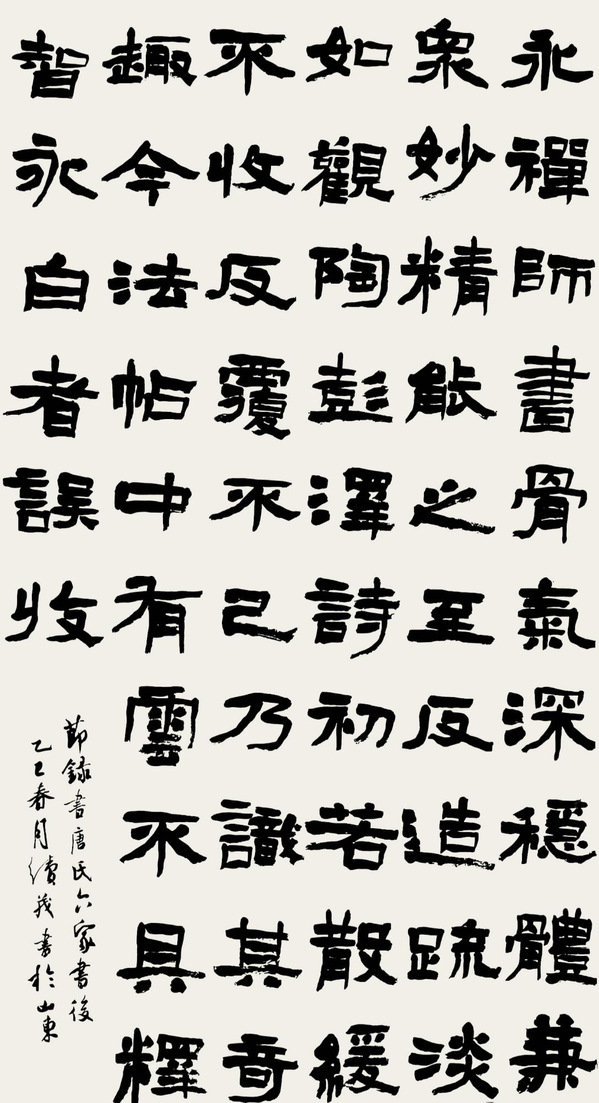 永禪師書骨氣深穩體兼
衆妙精能之至反造疏淡
如觀陶彭澤詩初若散緩
不收反覆不已乃識其奇
趣今法帖中有雲不具釋
智永白者誤收
節錄書唐氏六家書後
乙巳春月續茂書於山東